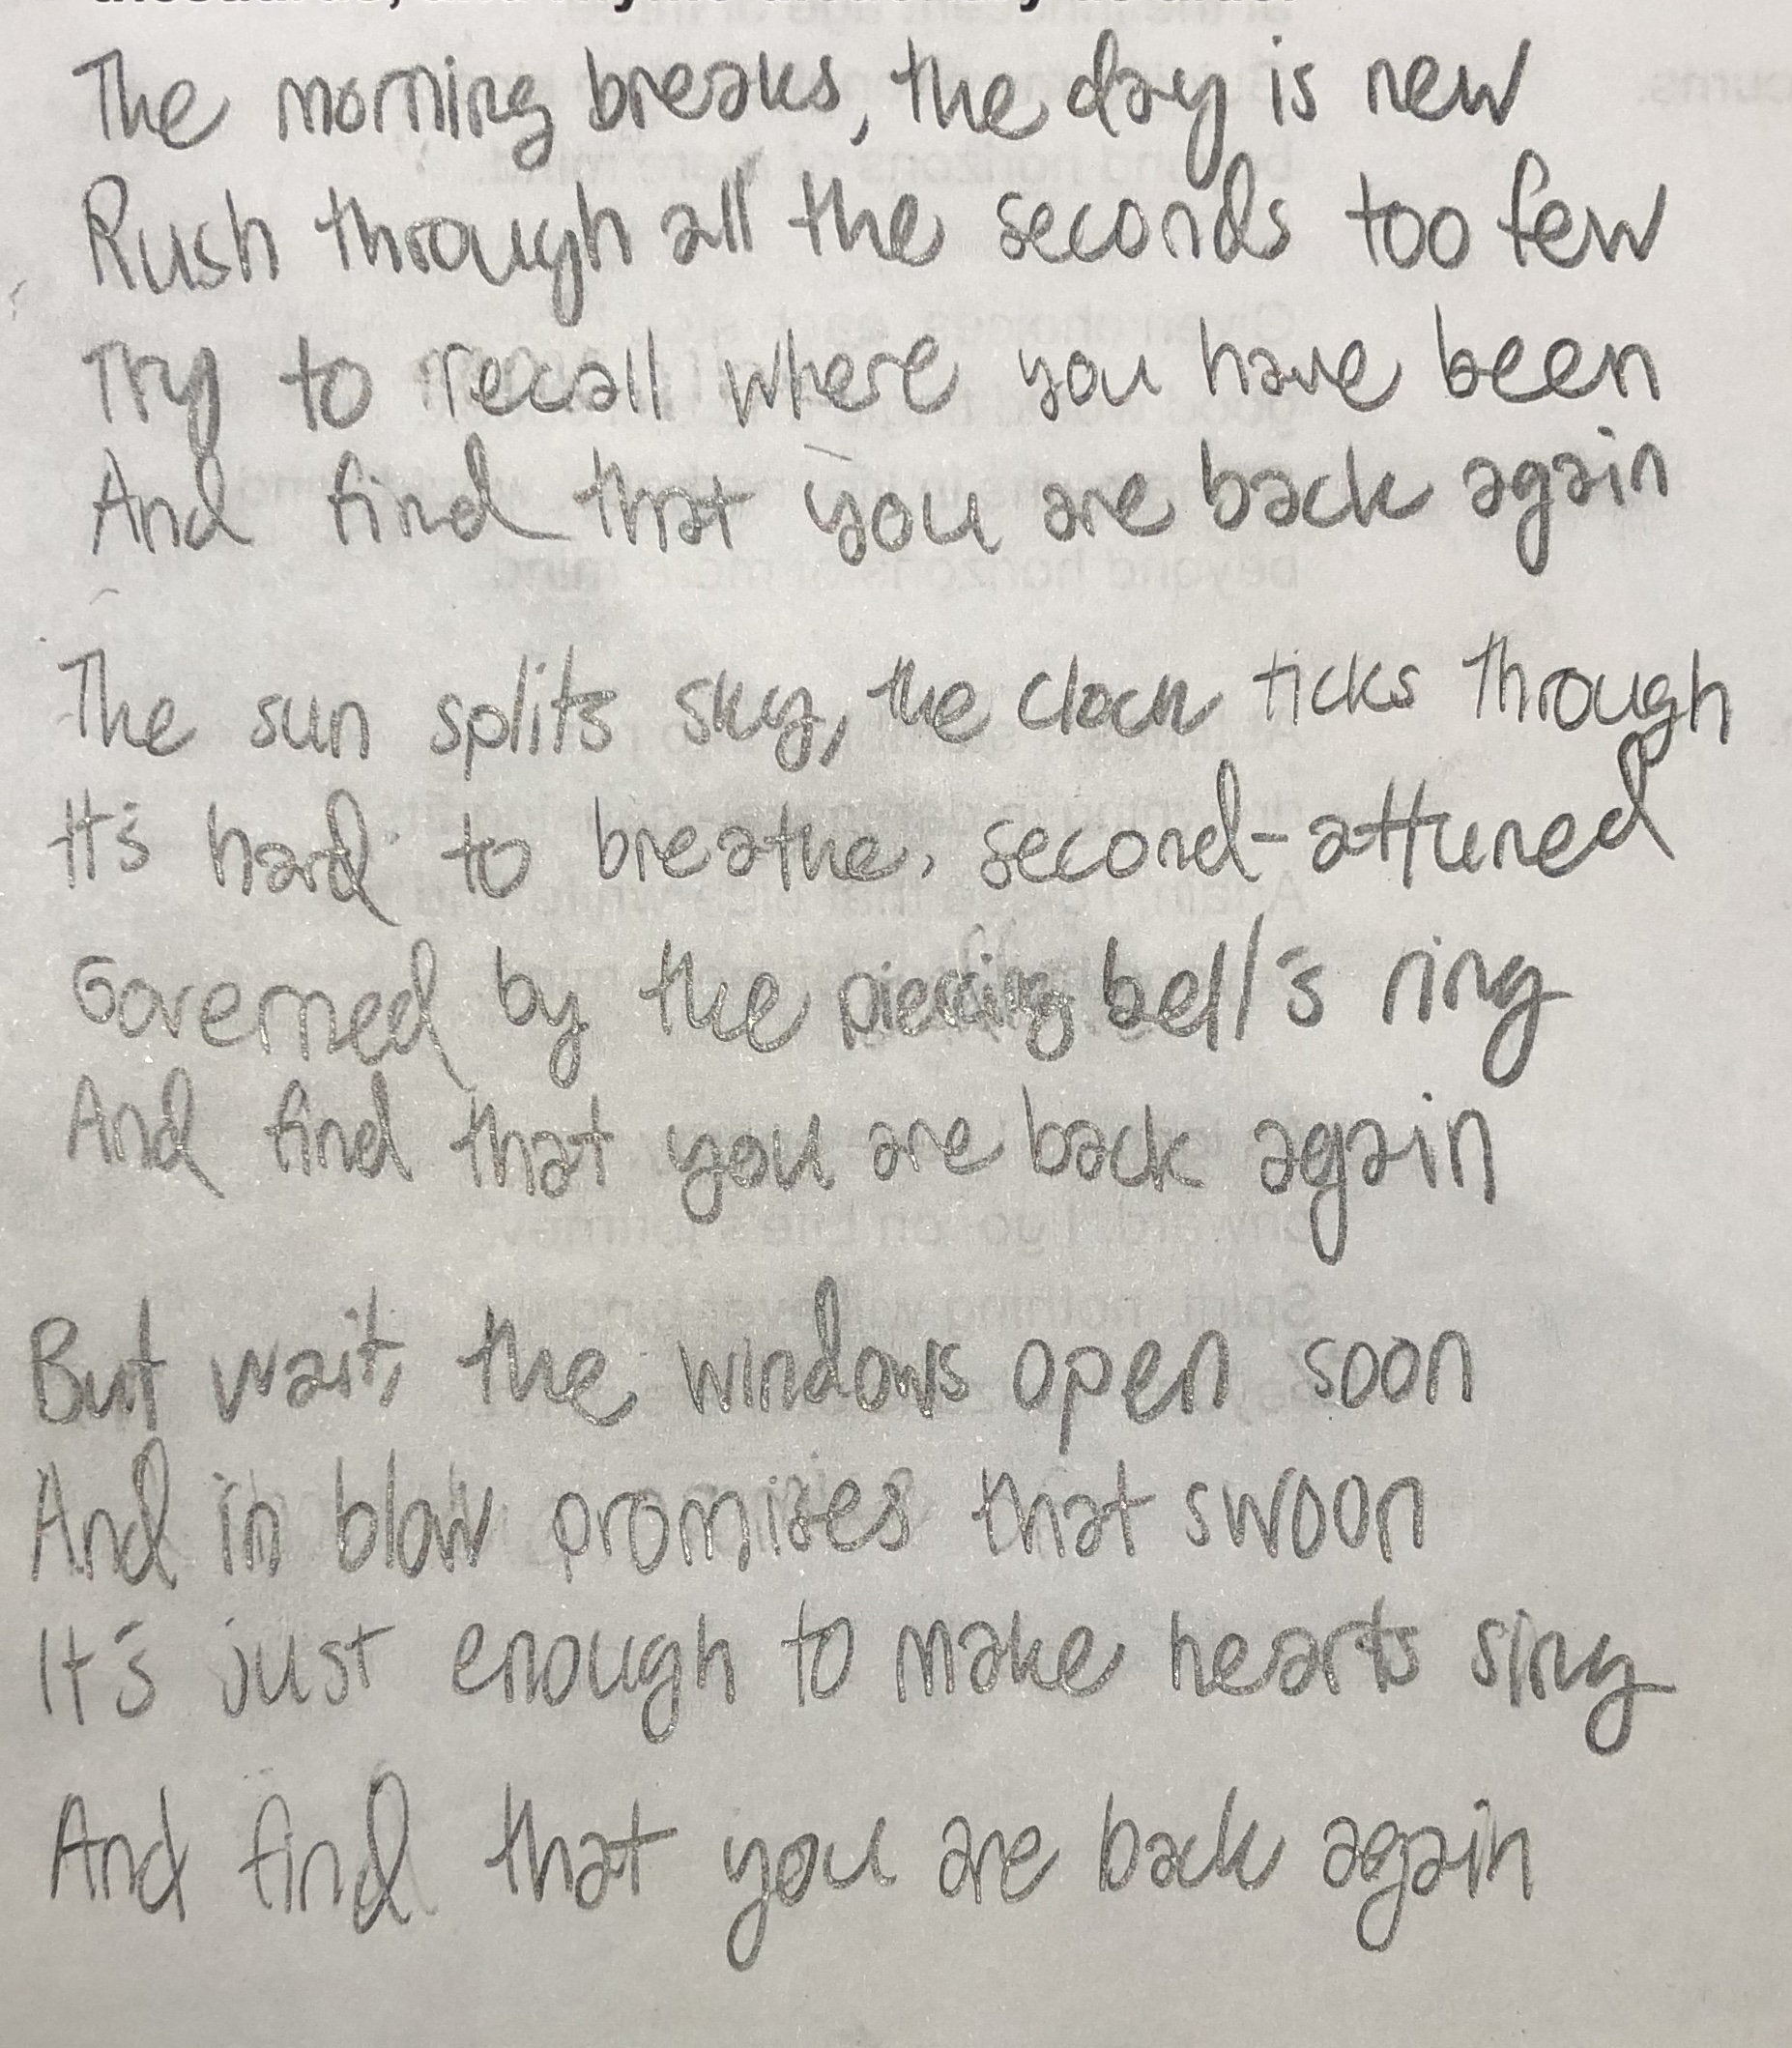 The morning breaks, the day is new
Rush through all the seconds too few
Try to recall where you have been
And find that you are back again
The sun splits sky, the clock ticks through
It's hard to breathe, second-attuned
Governed by the piercing bell's ring
And find that you are back again
But wait, the windows open soon
And in blow promises that swoon
It's just enough to make hearts sing
And find that you are back again